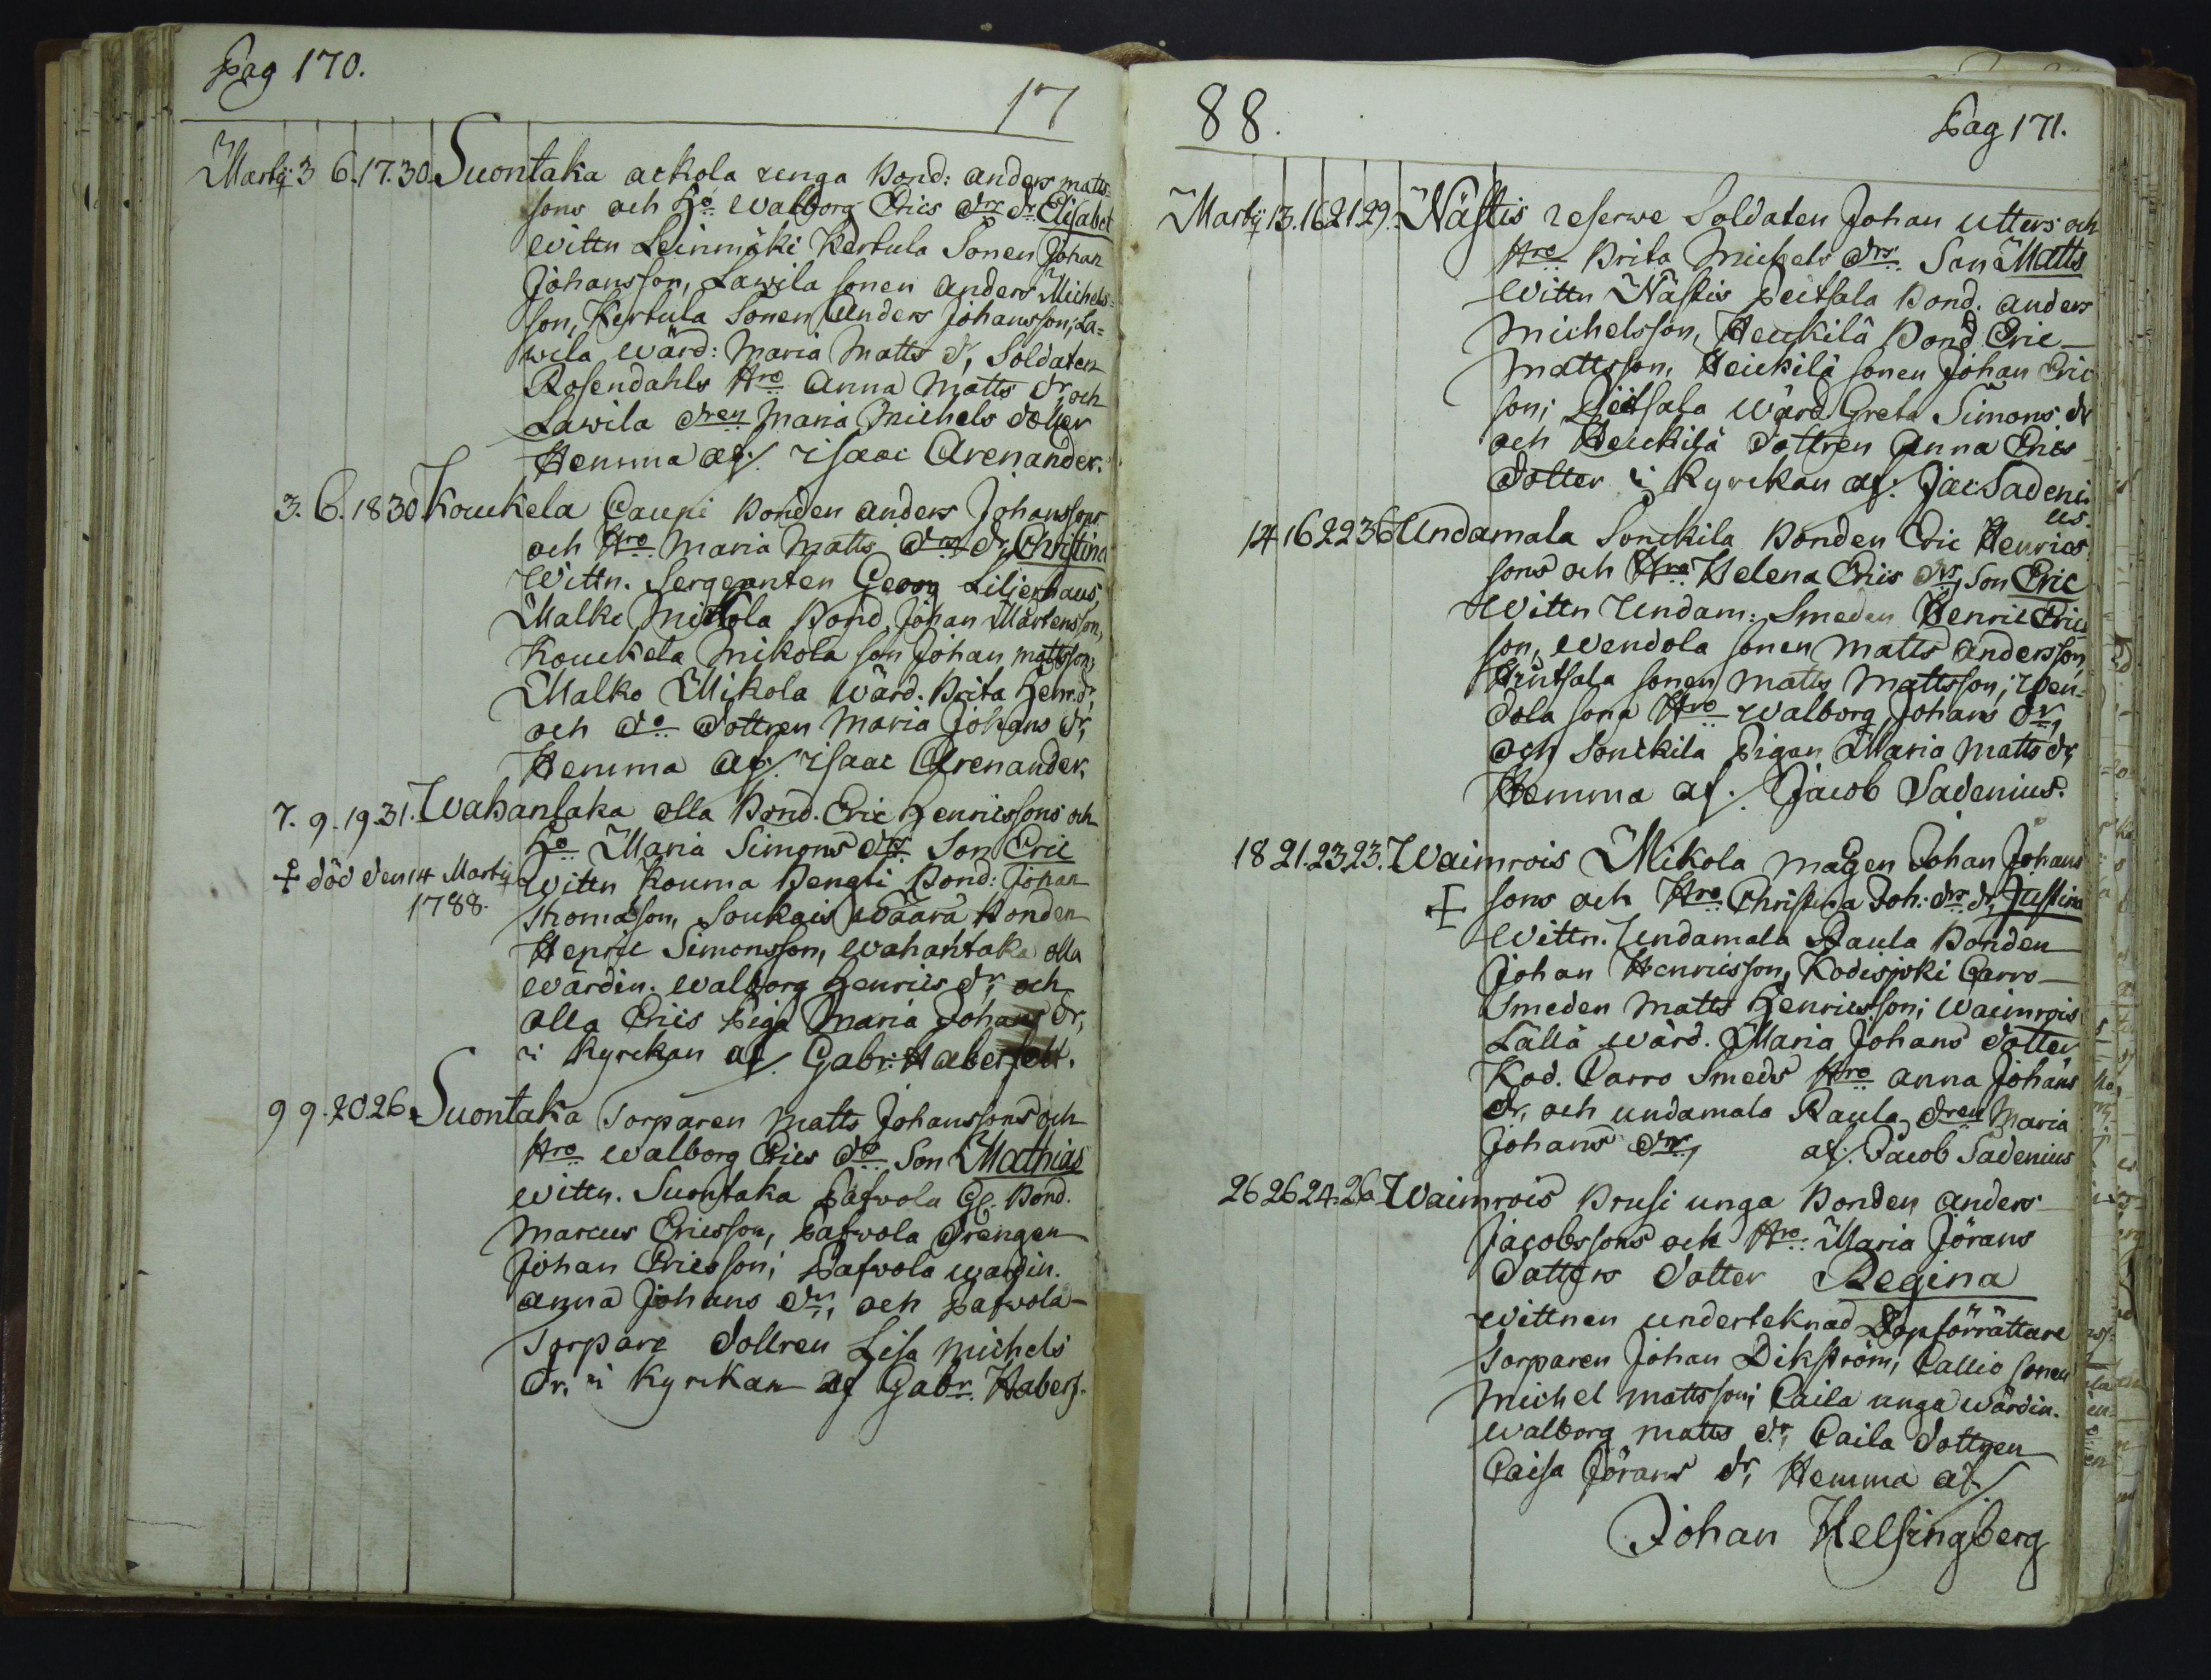 Pag 170.
17
Martij 3 6. 17. 30. Suontaka ackola unga Bond: anders matts=
sons och Ho walborg Erics drs dr Elisabet
wittn Leinmäki Kertula Sonen Johan
Johansson, Lawila sonen anders Michels=
son, Kertula Sonen Anders Johansson; La=
wila wärd: Maria Matts dr, Soldaten
Rosendahls Hro Anna Matts dr, och
Lawila dren Maria Michels dotter
Hemma af. Isaac Arenander.
3. 6. 18 30. Kouckela Caupi Bonden anders Johanssons
och Hro Maria Matts drs dr, Christina
Wittn. Sergeanten Georg Liljenhaus,
Malko Mickola Bond. Johan Mårtensson,
Kouckela Mikola son Johan mattsson;
Malko Mikola wärd. Brita Henr. dr,
och do dottren Maria Johans dr,
Hemma af. Isaac Arenander.
7. 9. 19 31. Wahantaka olla Bond. Eric Henricssons och
Ho Maria Simons drs Son Eric
död den 14 Martij wittn Kouma Bengti Bond: Johan
1788. Thomasson, Soukais Wäärä Bonden
Henric Simonsson, wahantaka olla
wärdin. walborg Henrics dr, och
olla Erics piga Maria Johans dr,
i kyrckan af Gabr: Haberfelt.
9 9. 20. 26. Suontaka Torparen Matts Johanssons och
Hro walborg Erics do Son Mathias
wittn. Suontaka Pafvola Gl. Bond.
Marcus Ericsson, Pafvola drängen
Johan Ericsson; Pafvola wärdin.
Anna Johans dr, och Pafvola
Torpare dottren Lisa Michels
dr. i kyrckan af Gabr. Haberf.
88.
Pag 171.
Martij 13. 16 21 29. Nästis reserwe Soldaten Johan Utters och
Hro Brita Michels drs Son Matts
Wittn Nästis Peitsala Bond. anders
Michelsson, Heickilä Bond Eric
Mattsson, Heickilä sonen Johan Eric
son; Peitsala wärd Greta Simons dr
och Heickilä dottren Anna Erics
dotter i kyrckan af. Jac Sadeni
us.
14 16 22 26 Undamala Sonckila Bonden Eric Henrics
sons och Hro Helena Erics drs, Son Eric
Wittn Undam: Smeden Henric Erics
son, wendola sonen Matts Andersson,
sonen Matts Mattsson; wen=
dola sona Hro walborg Johans dr,
och Sonckila Pigan Maria Matts dr,
Hemma af. Jacob Sadenius.
18 21. 23 23. Waimrois Mikola mågen Johan Johans
sons och Hro Christina Joh: drs dr, Justina
Wittn. Undamala Raula Bonden
Johan Henricsson, Kodisjoki Carro
Smeden Matts Henricsson; Waimrois
Lallä wärd. Maria Johans dotter
Kod. Carro Smeds Hro Anna Johans
dr, och undamala Raula dren Maria
Johans dr, af. Jacob Sadenius
26 26 24. 26 Waimrois Prusi unga Bonden anders
Jacobssons och Hro Maria Jörans
dotters dotter Regina
wittnen underteknad Dopförrättare
Torparen Johan Dikström; Callio sonen
Michel Mattsson; Caila unga wärdin.
walborg Matts dr, Caila dottren
Caisa Jörans dr, Hemma af
Johan Helsingberg